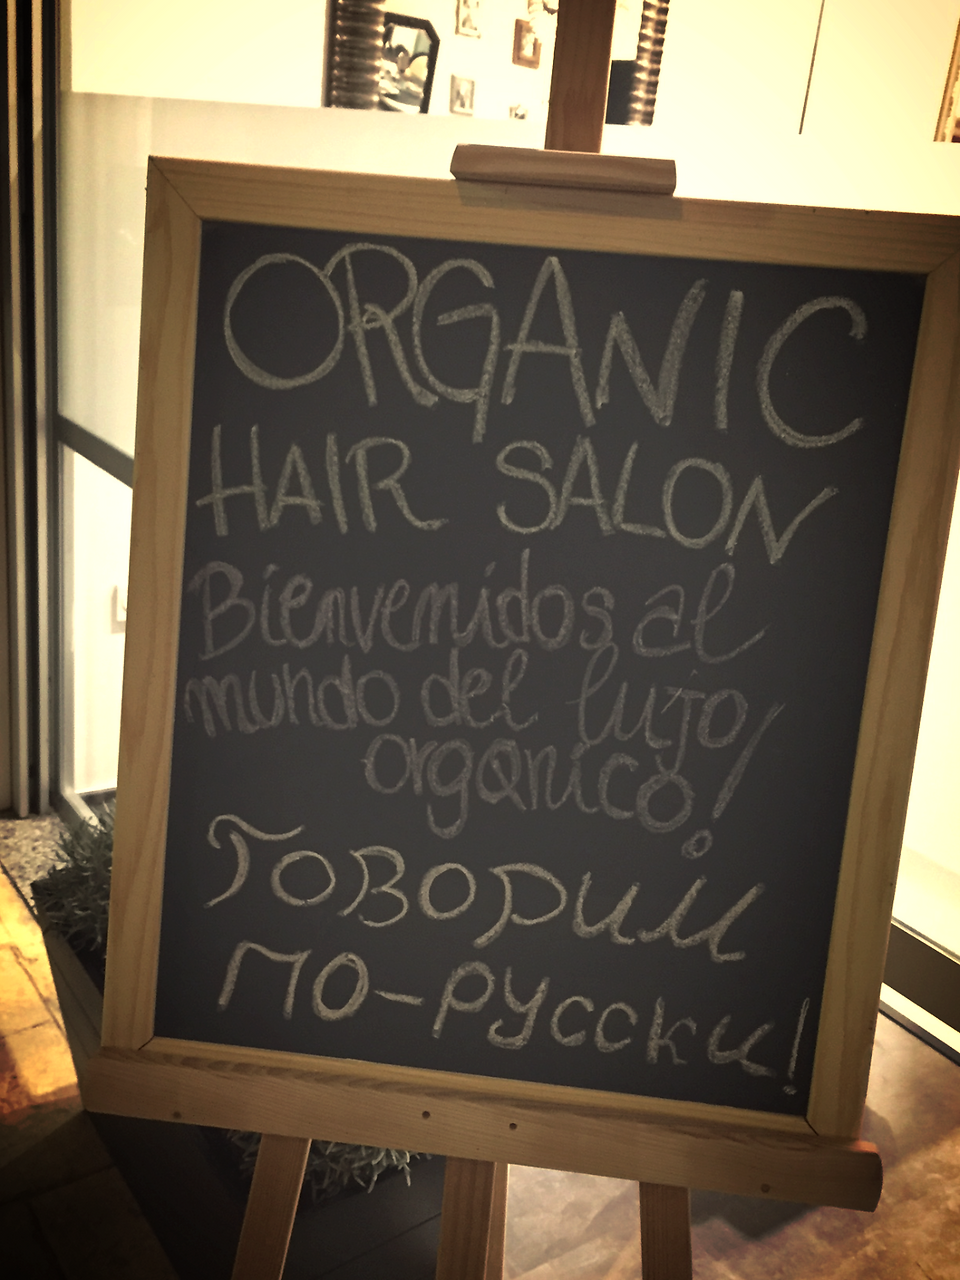 ORGANIC
HAIR SALON
Bienvenidos al
mundo del lujo
orgánico!
Говорим
по-русски!